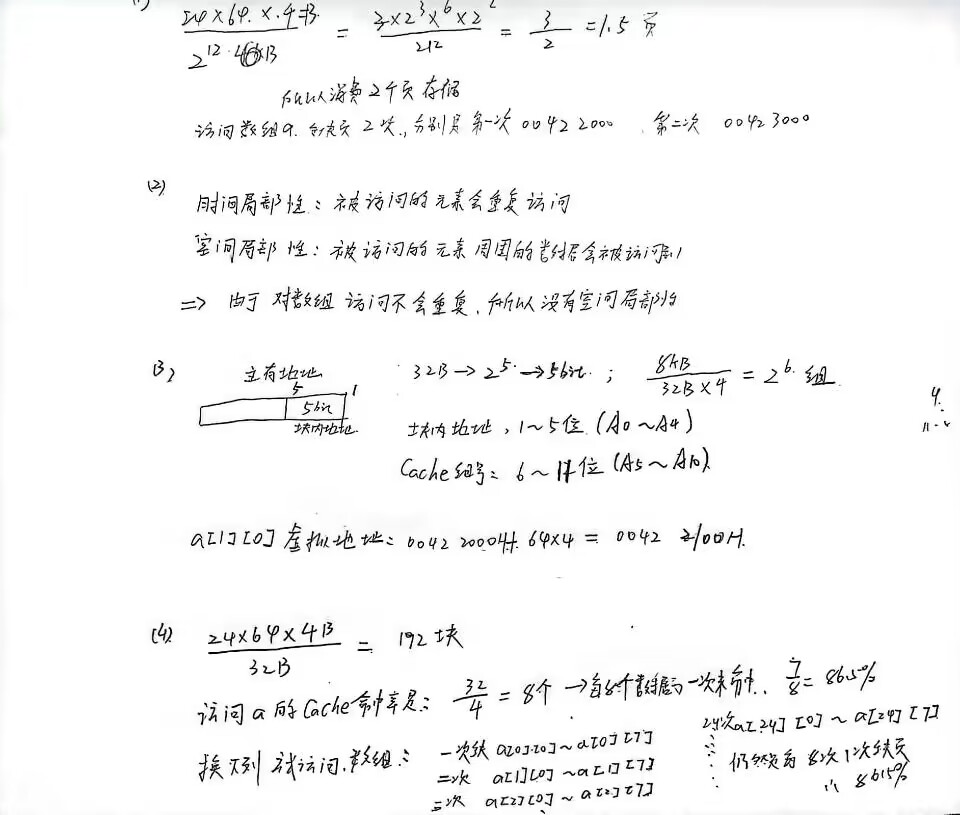 (1) 24×64×4B / 2^12·4KB = 3×2^3×2^6×2^2 / 2^12 = 3/2 = 1.5 页
所以 需要 2个页 存储
访问数组a. 缺页 2次, 分别是 第一次 0042 2000 、第二次 0042 3000
(2) 时间局部性: 被访问的元素会重复访问
空间局部性: 被访问的元素周围的数据会被访问到
=> 由于 对数组 访问不会重复, 所以没有空间局部性
(3) 主存地址 32B→2^5→5bit ; 8KB / 32B×4 = 2^6 组
5 1
5bit
块内地址
块内地址, 1~5位 (A0~A4)
Cache组号: 6~11位 (A5~A10)
a[1][0] 虚拟地址: 0042 2000H 64×4 = 0042 2100H
(4) 24×64×4B / 32B = 192块
访问a的Cache命中率是: 32/4 = 8个 → 每8个数据 一次未命中, 7/8 = 86.5%
换 列 访问,数组: 一次缺 a[0][0]~a[0][7]
二次 a[1][0]~a[1][7]
三次 a[2][0]~a[2][7]
24次a[24][0]~a[24][7]
仍然为 8次1次缺页
86.5%